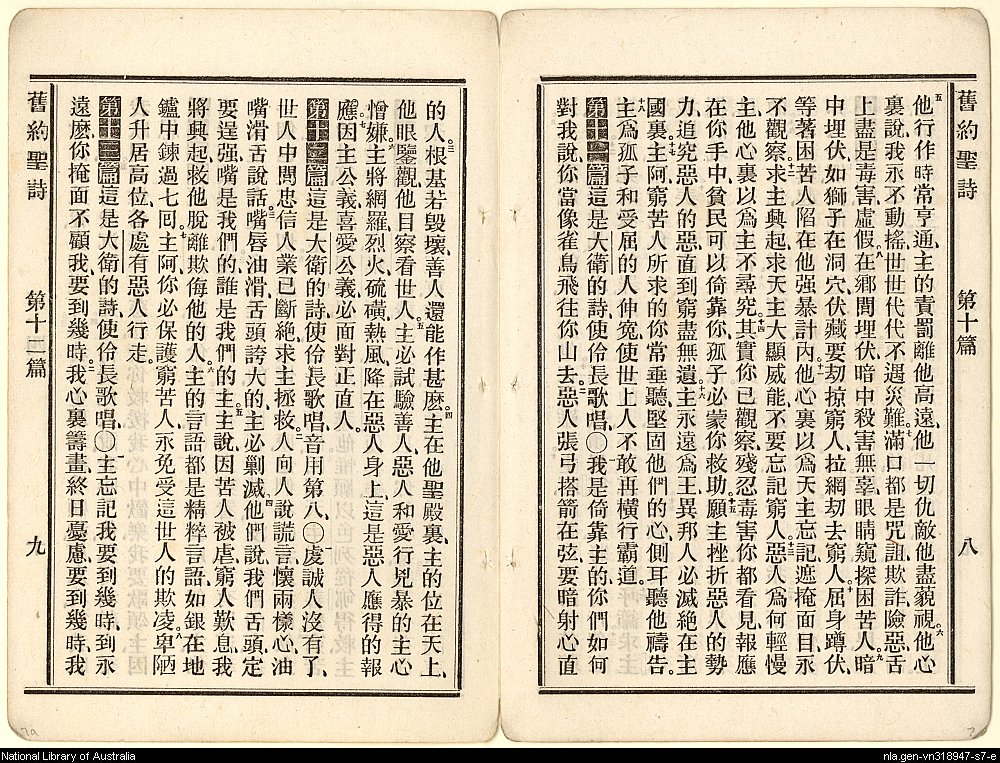 舊約聖詩 第十篇 八
他行作時常亨通、主的責罰離他高遠、他一切仇敵他盡藐視、他心
裏說、我永不動搖、世世代代不遇災難、滿口都是咒詛欺詐險惡、舌
上盡是毒害虛假、在鄉間埋伏、暗中殺害無辜、眼睛窺探困苦人、暗
中埋伏如獅子在洞穴、伏藏要刧掠窮人、拉網刧去窮人、屈身蹲伏、
等著困苦人陷在他强暴計內、他心裏以爲天主忘記、遮掩面目永
不觀察、求主興起、求天主大顯威能、不要忘記窮人、惡人爲何輕慢
主、他心裏以爲主不尋究、其實你已觀察、殘忍毒害你都看見、報應
在你手中、貧民可以倚靠你、孤子必蒙你救助、願主挫折惡人的勢
力、追究惡人的惡、直到窮盡無遺、主永遠爲王、異邦人必滅絕在主
國裏、主阿、窮苦人所求的、你常垂聽、堅固他們的心、側耳聽他禱告、
主爲孤子和受屈的人伸寃、使世上人不敢再橫行霸道。
第十一篇 這是大衛的詩、使伶長歌唱、〇我是倚靠主的、你們如何
對我說、你當像雀鳥飛往你山去、惡人張弓搭箭在弦、要暗射心直
的人、根基若毀壞、善人還能作甚麽、主在他聖殿裏、主的位在天上、
他眼鑒觀、他目察看世人、主必試驗善人、惡人和愛行兇暴的主心
憎嫌、主將網羅烈火、硫磺熱風、降在惡人身上、這是惡人應得的報
應、因主公義喜愛公義、必面對正直人。
第十二篇 這是大衛的詩、使伶長歌唱、音用第八、〇虔誠人沒有了、
世人中間忠信人業已斷絕、求主拯救、人向人說謊言、懷兩樣心、油
嘴滑舌說話、嘴唇油滑、舌頭誇大的、主必剿滅、他們說、我們舌頭定
要逞强、嘴是我們的、誰是我們的主、主說、因苦人被虐、窮人歎息、我
將興起、救他脫離欺侮他的人、主的言語都是精粹言語、如銀在地
鑪中鍊過七回、主阿、你必保護窮苦人、永免受這世人的欺凌、卑陋
人升居高位、各處有惡人行走。
第十三篇 這是大衛的詩、使伶長歌唱、〇主忘記我要到幾時、到永
遠麽、你掩面不顧我、要到幾時、我心裏籌畫、終日憂慮、要到幾時、我
舊約聖詩 第十二篇 九
National Library of Australia
nla.gen-vn318947-s7-e